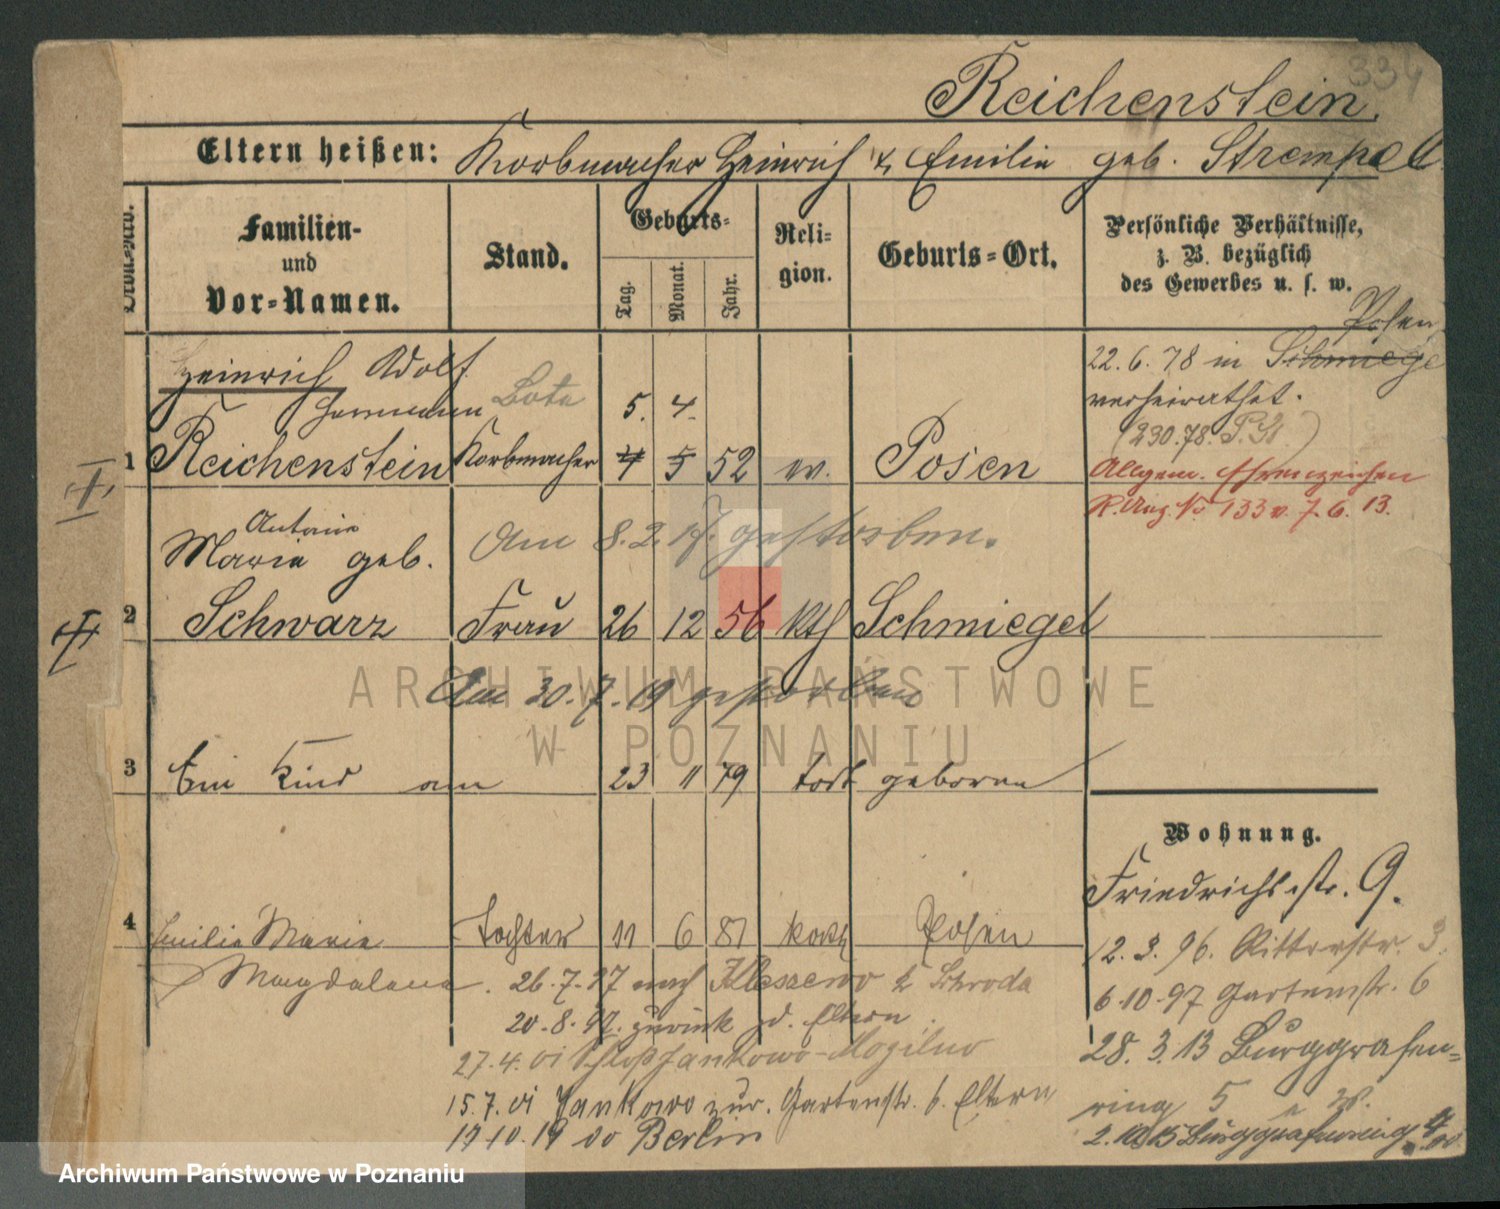 334
Reichenstein.
Eltern heißen: Korbmacher Heinrich & Emilie geb. Strempel
Familien- und Vor-Namen.
Stand.
Geburts-
Tag. Monat. Jahr.
Reli-
gion.
Geburts-Ort.
Persönliche Verhältnisse,
z. B. bezüglich
des Gewerbes u. s. w.
Heinrich Adolf
Hermann Bote 5. 4.
1 Reichenstein Korbmacher 4 5 52 ev. Posen
Posen
22.6.78 in Schmiegel
verheirathet.
(230.78. P. )
Allgem. Ehrenzeichen
R. Anz. No 133 v. 7.6.13.
Antonie
Marie geb.
Am 8.2. gestorben.
2 Schwarz Frau 26 12 56 kth Schmiegel
Am 30.7.19 gestorben
3 Ein Kind am 23 11 79 todt geboren
4 Emilie Marie Tochter 11 6 81 kath Posen
Magdalena. 26.7.97 nach Kleszewo b Schroda
20.8.97. zurück zd. Eltern.
27.4.01 Schloß Jankowo-Mogilno
15.7.01 Jankowo zur. Gartenstr. b. Eltern
17 10.19 Berlin
Wohnung.
Friedrichstr. 9.
12.3.96. Ritterstr. 3.
6.10.97 Gartenstr. 6
28.3.13 Burggrafen-
ring 5
Burggrafenring 4
ARCHIWUM PAŃSTWOWE
W POZNANIU
Archiwum Państwowe w Poznaniu